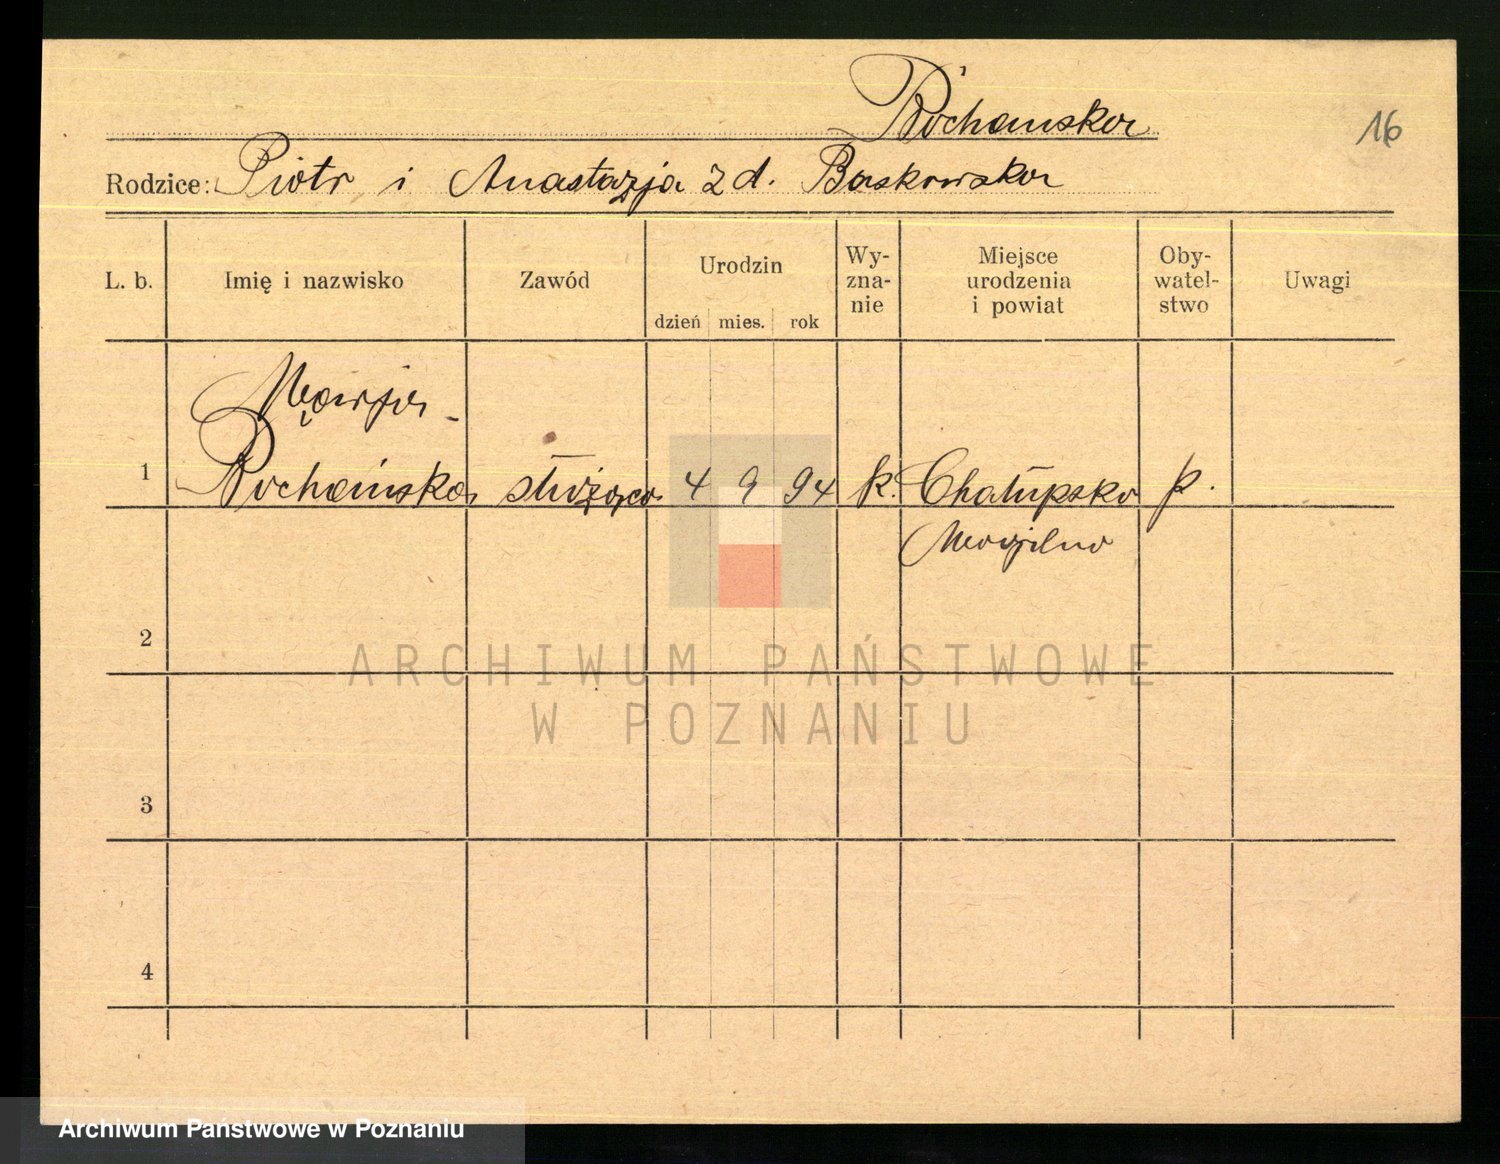 Pochańska
16
Rodzice: Piotr i Anastazja z d. Baskowska
L. b. Imię i nazwisko Zawód Urodzin dzień mies. rok Wy-zna-nie Miejsce urodzenia i powiat Oby-watel-stwo Uwagi
1 Pochańska służąca 4 9 94 k. Chałupska p.
2
3
4
ARCHIWUM PAŃSTWOWE
W POZNANIU
Archiwum Państwowe w Poznaniu